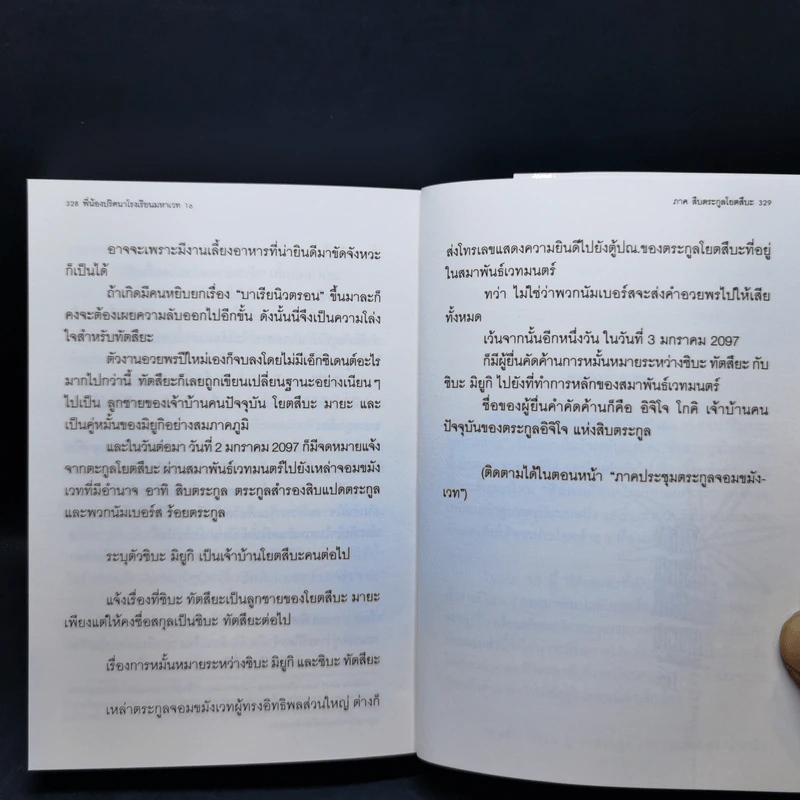 328 พี่น้องปริศนาโรงเรียนมหาเวท 16
อาจจะเพราะมีงานเลี้ยงอาหารที่น่ายินดีมาขัดจังหวะ
ก็เป็นได้
ถ้าเกิดมีคนหยิบยกเรื่อง “บาเรียนิวตรอน” ขึ้นมาละก็
คงจะต้องเผยความลับออกไปอีกขั้น ดังนั้นนี่จึงเป็นความโล่ง
ใจสำหรับทัตสึยะ
ตัวงานอวยพรปีใหม่เองก็จบลงโดยไม่มีเอ็กซิเดนต์อะไร
มากไปกว่านี้ ทัตสึยะก็เลยถูกเขียนเปลี่ยนฐานะอย่างเนียนๆ
ไปเป็น ลูกชายของเจ้าบ้านคนปัจจุบัน โยตสึบะ มายะ และ
เป็นคู่หมั้นของมิยูกิอย่างสมภาคภูมิ
และในวันต่อมา วันที่ 2 มกราคม 2097 ก็มีจดหมายแจ้ง
จากตะกูลโยตสึบะ ผ่านสมาพันธ์เวทมนตร์ไปยังเหล่าจอมขมัง
เวทที่มีอำนาจ อาทิ สิบตระกูล ตระกูลสำรองสิบแปดตระกูล
และพวกนัมเบอร์ส ร้อยตระกูล
ระบุตัวชิบะ มิยูกิ เป็นเจ้าบ้านโยตสึบะคนต่อไป
แจ้งเรื่องที่ชิบะ ทัตสึยะเป็นลูกชายของโยตสึบะ มายะ
เพียงแต่ให้คงชื่อสกุลเป็นชิบะ ทัตสึยะต่อไป
เรื่องการหมั้นหมายระหว่างชิบะ มิยูกิ และชิบะ ทัตสึยะ
เหล่าตระกูลจอมขมังเวทผู้ทรงอิทธิพลส่วนใหญ่ ต่างก็
ภาค สิบตระกูลโยตสึบะ 329
ส่งโทรเลขแสดงความยินดีไปยังตู้ปณ.ของตระกูลโยตสึบะที่อยู่
ในสมาพันธ์เวทมนตร์
ทว่า ไม่ใช่ว่าพวกนัมเบอร์สจะส่งคำอวยพรไปให้เสีย
ทั้งหมด
เว้นจากนั้นอีกหนึ่งวัน ในวันที่ 3 มกราคม 2097
ก็มีผู้ยื่นคัดค้านการหมั้นหมายระหว่างชิบะ ทัตสึยะ กับ
ชิบะ มิยูกิ ไปยังที่ทำการหลักของสมาพันธ์เวทมนตร์
ชื่อของผู้ยื่นคำคัดค้านก็คือ อิจิโจ โกคิ เจ้าบ้านคน
ปัจจุบันของตระกูลอิจิโจ แห่งสิบตระกูล
(ติดตามได้ในตอนหน้า “ภาคประชุมตระกูลจอมขมัง-
เวท”)